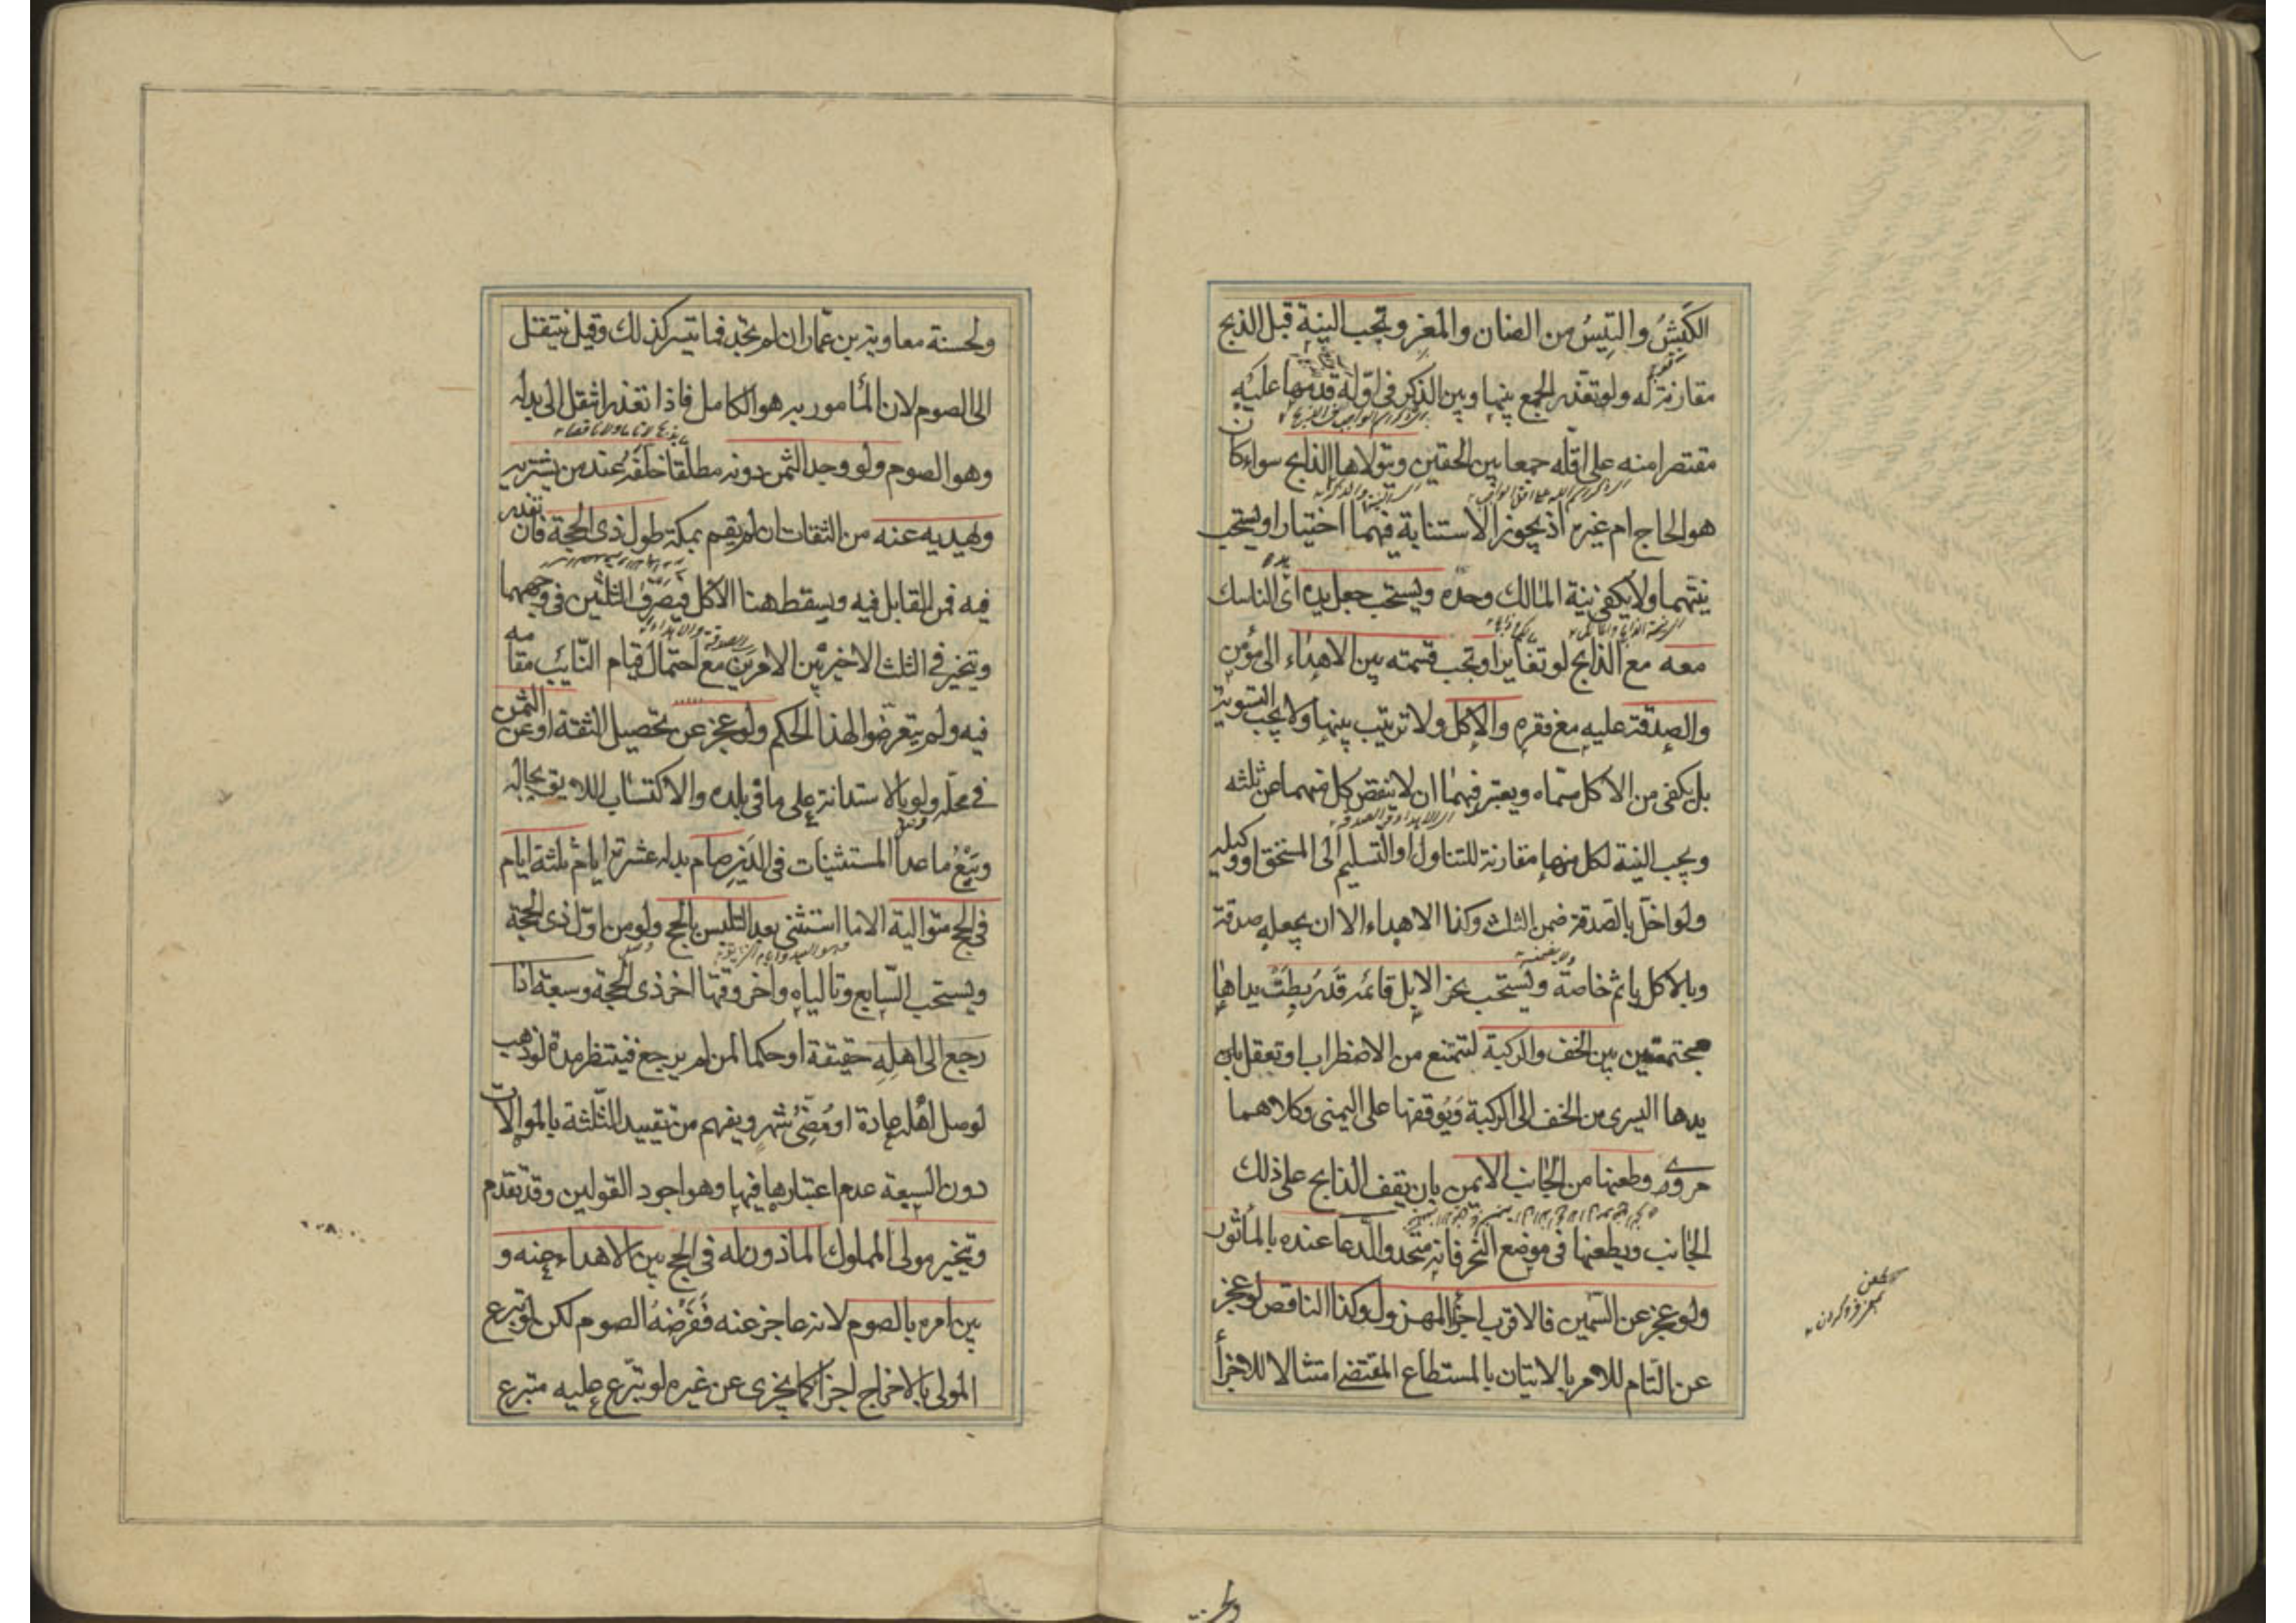 الكَبشُ والتِيسُ من الضان والمغز وتجب النية قبل الذبح
مقارنة له ولو تعذر الجمع بينها وبين الذكر في اوله قدمها عليه
مقتصرا منه على اقله جمعا بين الحقين ويتولاها الذابح سواء كان
هو الحاج ام غيره اذ يجوز الاستنابة فيهما اختيارا ويستحب
نيتهما ولا يكفي نية المالك وحده ويستحب جعل يده اى الناسك
معه مع الذابح لو تغايرا وتجب قسمته بين الاهداء الى مؤمن
والصدقة عليه مع فقره والاكل ولا ترتيب بينها ولا يجب التسوية
بل يكفى من الاكل مسماه ويعتبر فيهما ان لا ينقص كل منهما عن ثلثه
ويجب النية لكل منها مقارنة للتناول او التسليم الى المستحق او وكيله
ولو اخل بالصدقة ضمن الثلث وكذا الاهداء الا ان يجعله صدقة
وبالاكل ياثم خاصة ويستحب نحر الابل قائمة قد رُبِطَتْ يداها
مجتمعتين بين الخف والركبة لتمتنع من الاضطراب او تعقل
يدها اليسرى من الخف الى الركبة ويُوقفها على اليمنى وكلاهما
مروى وطعنها من الجانب الايمن بان يقف الذابح على ذلك
الجانب ويطعنها في موضع النحر فانه متحد والدعا عنده بالمأثور
ولو عجز عن السمين فالاقرب اجزا المهزول وكذا الناقص لو عجز
عن التام للامر بالاتيان بالمستطاع المقتضى امتثالا للاجزأ
طعن
فرو كردن
ولحسنة
ولحسنة معاوية بن عمار ان لم تجد فما تيسر كذلك وقيل ينتقل
الى الصوم لان المأمور به هو الكامل فاذا تعذر انتقل الى بدله
وهو الصوم ولو وجد الثمن دونه مطلقا خلّفه عند من يشتريه
ويهديه عنه من الثقات ان لم يقم بمكة طول ذى الحجة فان تعذر
فيه فمن القابل فيه ويسقط هنا الاكل فيصرف الثلثين في وجههما
ويتخير في الثلث الاخير بين الامرين مع احتمال قيام النائب مقامه
فيه ولم يتعرضوا لهذا الحكم ولو عجز عن تحصيل الثقة او عن الثمن
في محله ولو بالاستدانة على ما في بلده والاكتساب اللايق بحاله
وبَيْعُ ما عدا المستثنيات في الدين صام بدله عشرة ايام ثلثة ايام
في الحج متوالية الا ما استثنى بعد التلبس بالحج ولو من اول ذى الحجة
ويستحب السابع وتالياه واخر وقتها اخر ذى الحجة وسبعة اذا
رجع الى اهله حقيقة او حكما لمن لم يرجع فينتظر مدة لو ذهب
لوصل اهله عادة او مُضِىّ شهر ويفهم من تقييد الثلثة بالموالات
دون السبعة عدم اعتبارها فيها وهو اجود القولين وقد تقدم
ويتخير مولى المملوك الماذون له في الحج بين الاهداء عنه و
بين امره بالصوم لانه عاجز عنه ففرضه الصوم لكن لو تبرع
المولى بالاخراج اجزا كما يجزى عن غيره لو تبرع عليه متبرع